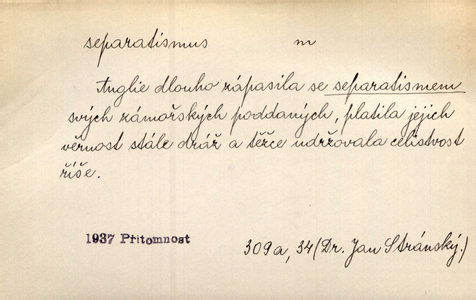 separatismus m
Anglie dlouho zápasila se separatismem
svých zámořských poddaných, platila jejich
věrnost stále dráž a těžce udržovala celistvost
říše.
1937 Přítomnost 309a, 34 (Dr. Jan Stránský.)